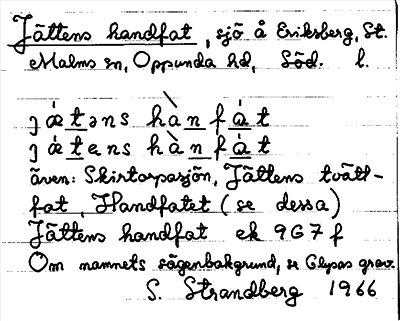 Jättens handfat, sjö å Eriksberg, St.
Malms sn, Oppunda hd, Söd. l.
jǽtəns hànfát
jǽtens hànfát
även: Skirtorpasjön, Jättens tvätt-
fat, Handfatet (se dessa)
Jättens handfat ek 9G7f
Om namnets sägenbakgrund, se Glysas grav.
S. Strandberg 1966